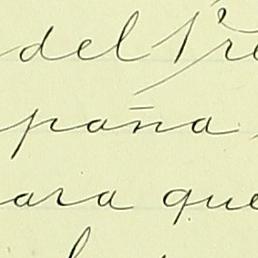 del Pre
paña
ara que